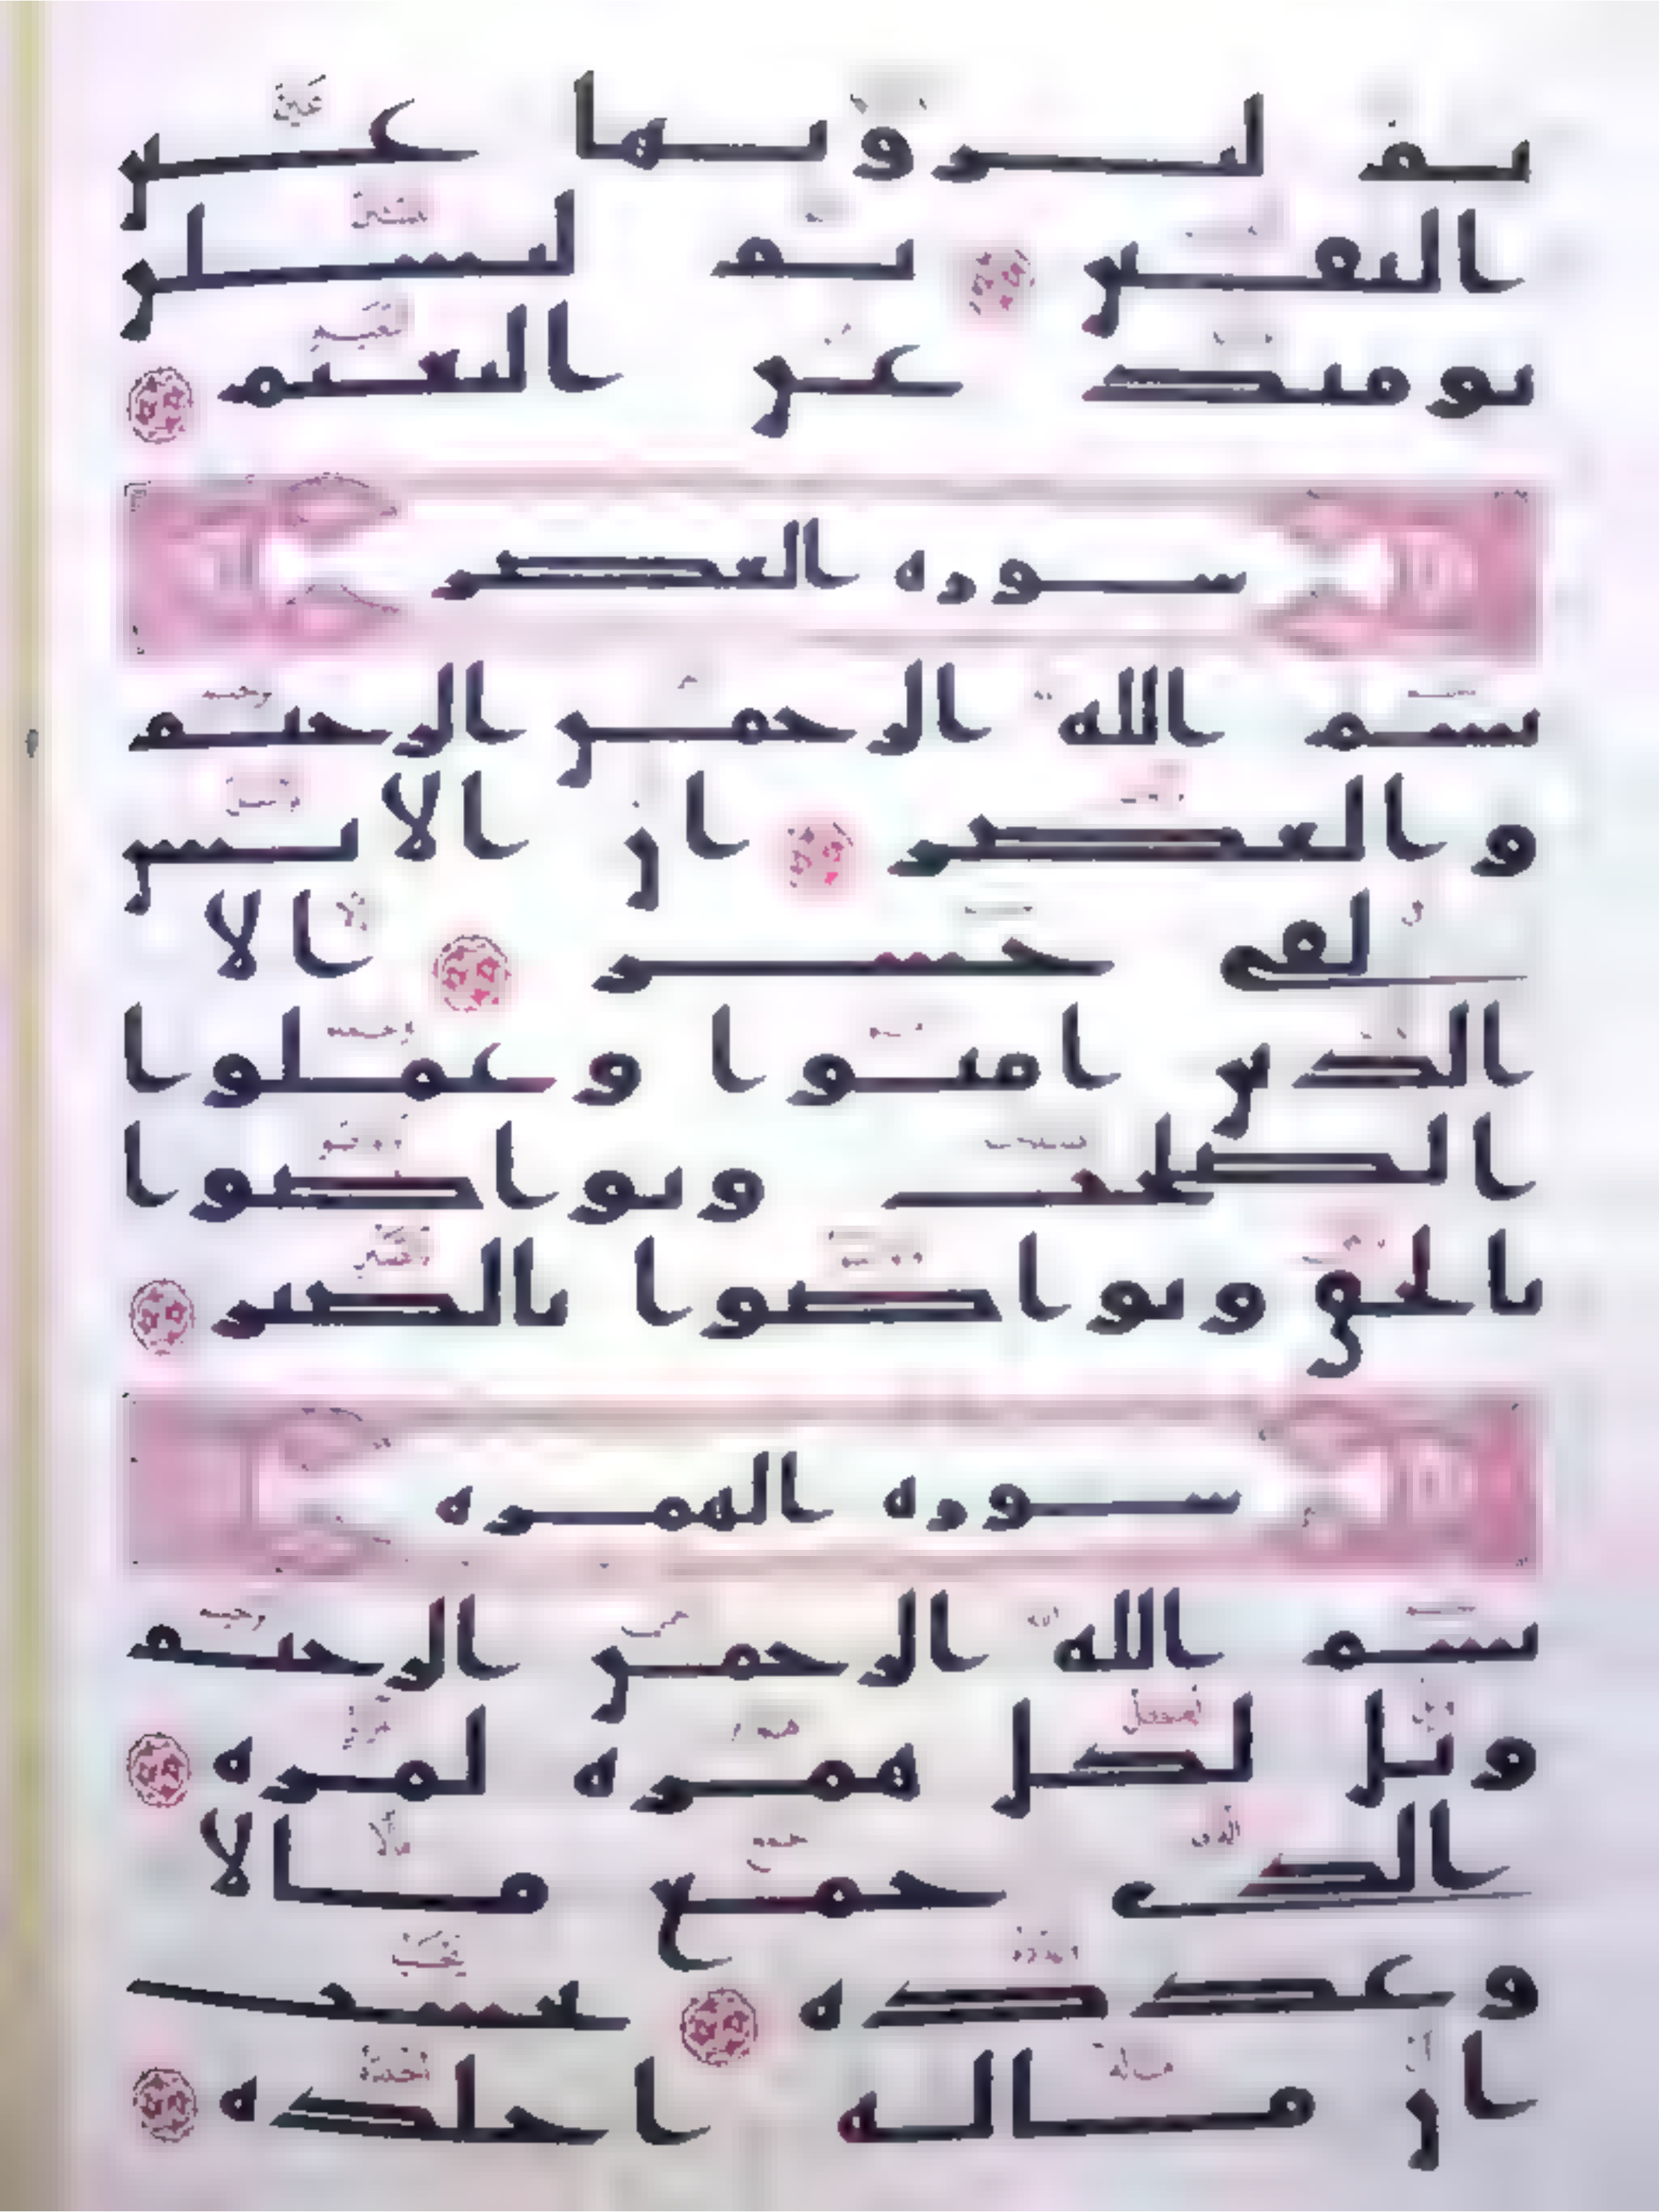 ثم لترونها عين
اليقين ثم لتسلن
يومئذ عن النعيم
سورة العصر
بسم الله الرحمن الرحيم
والعصر ان الانسن
لفي خسر الا
الذين امنوا وعملوا
الصلحت وتواصوا
بالحق وتواصوا بالصبر
سورة الهمزة
بسم الله الرحمن الرحيم
ويل لكل همزة لمزة
الذي جمع مالا
وعدده يحسب
ان ماله اخلده